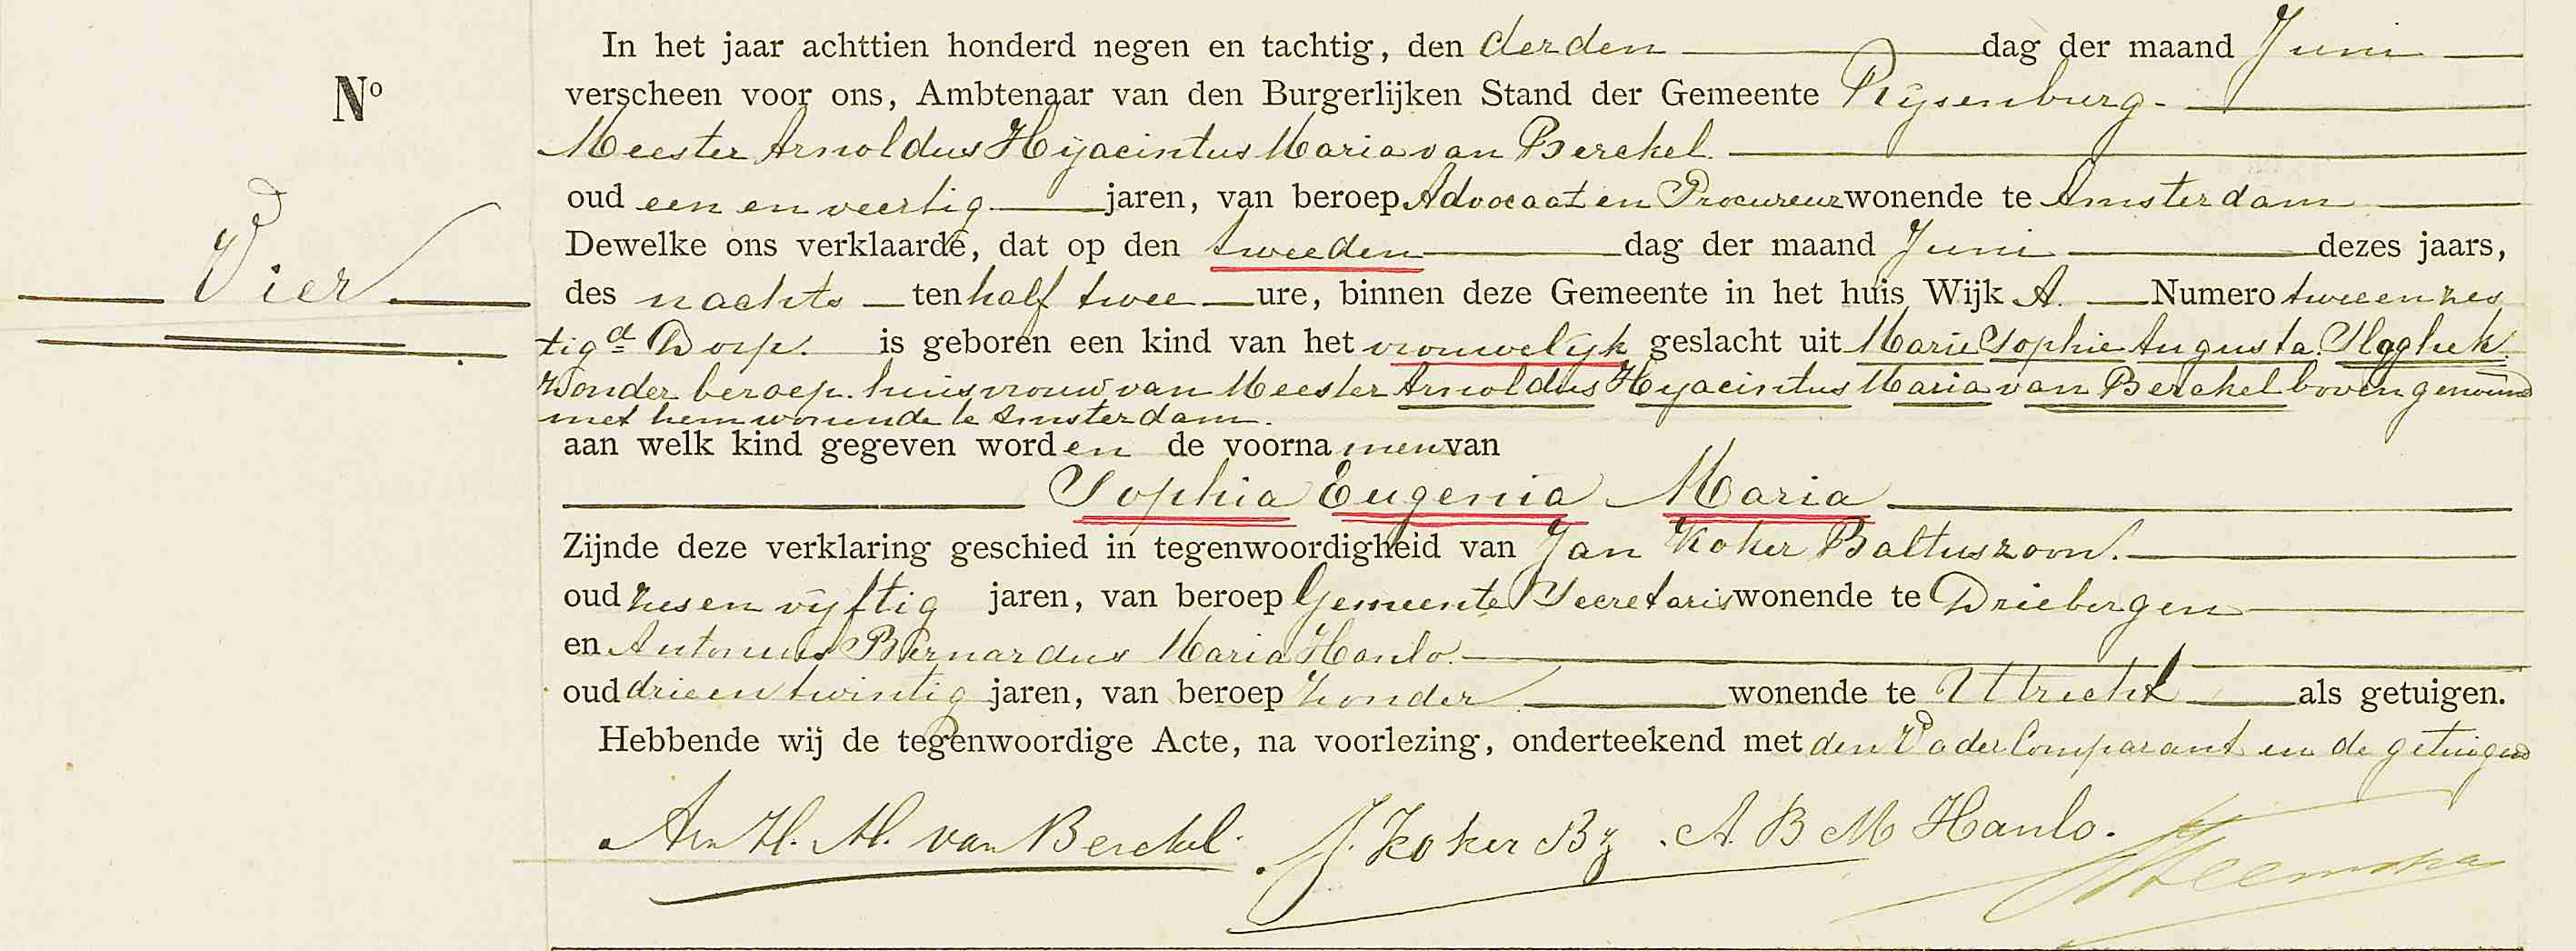 In het jaar achttien honderd negen en tachtig, den derden dag der maand Juni
Nº
verscheen voor ons, Ambtenaar van den Burgerlijken Stand der Gemeente Rijsenburg.
Meester Arnoldus Hijacintus Maria van Berckel.
oud een en veertig jaren, van beroep Advocaat en Procureur wonende te Amsterdam
Dewelke ons verklaarde, dat op den tweeden dag der maand Juni dezes jaars,
Vier
des nachts ten half twee ure, binnen deze Gemeente in het huis Wijk A. Numero twee en zes
tig d Dorp. is geboren een kind van het vrouwelijk geslacht uit Marie Sophie Augusta
zonder beroep. huisvrouw van Meester Arnoldus Hyacintus Maria van Berckel bovengenoemd
met hem wonende te Amsterdam.
aan welk kind gegeven worden de voornamen van
Sophia Eugenia Maria
Zijnde deze verklaring geschied in tegenwoordigheid van Jan Koker Baltuszoon.
oud zes en vijftig jaren, van beroep Gemeente Secretaris wonende te Driebergen
en Antonius Bernardus Maria Hanlo.
oud drie en twintig jaren, van beroep zonder wonende te Utrecht als getuigen.
Hebbende wij de tegenwoordige Acte, na voorlezing, onderteekend met den Vader Comparant en de getuigen
Arn. H. M. van Berckel. J. Koker Bz. A. B M Hanlo.